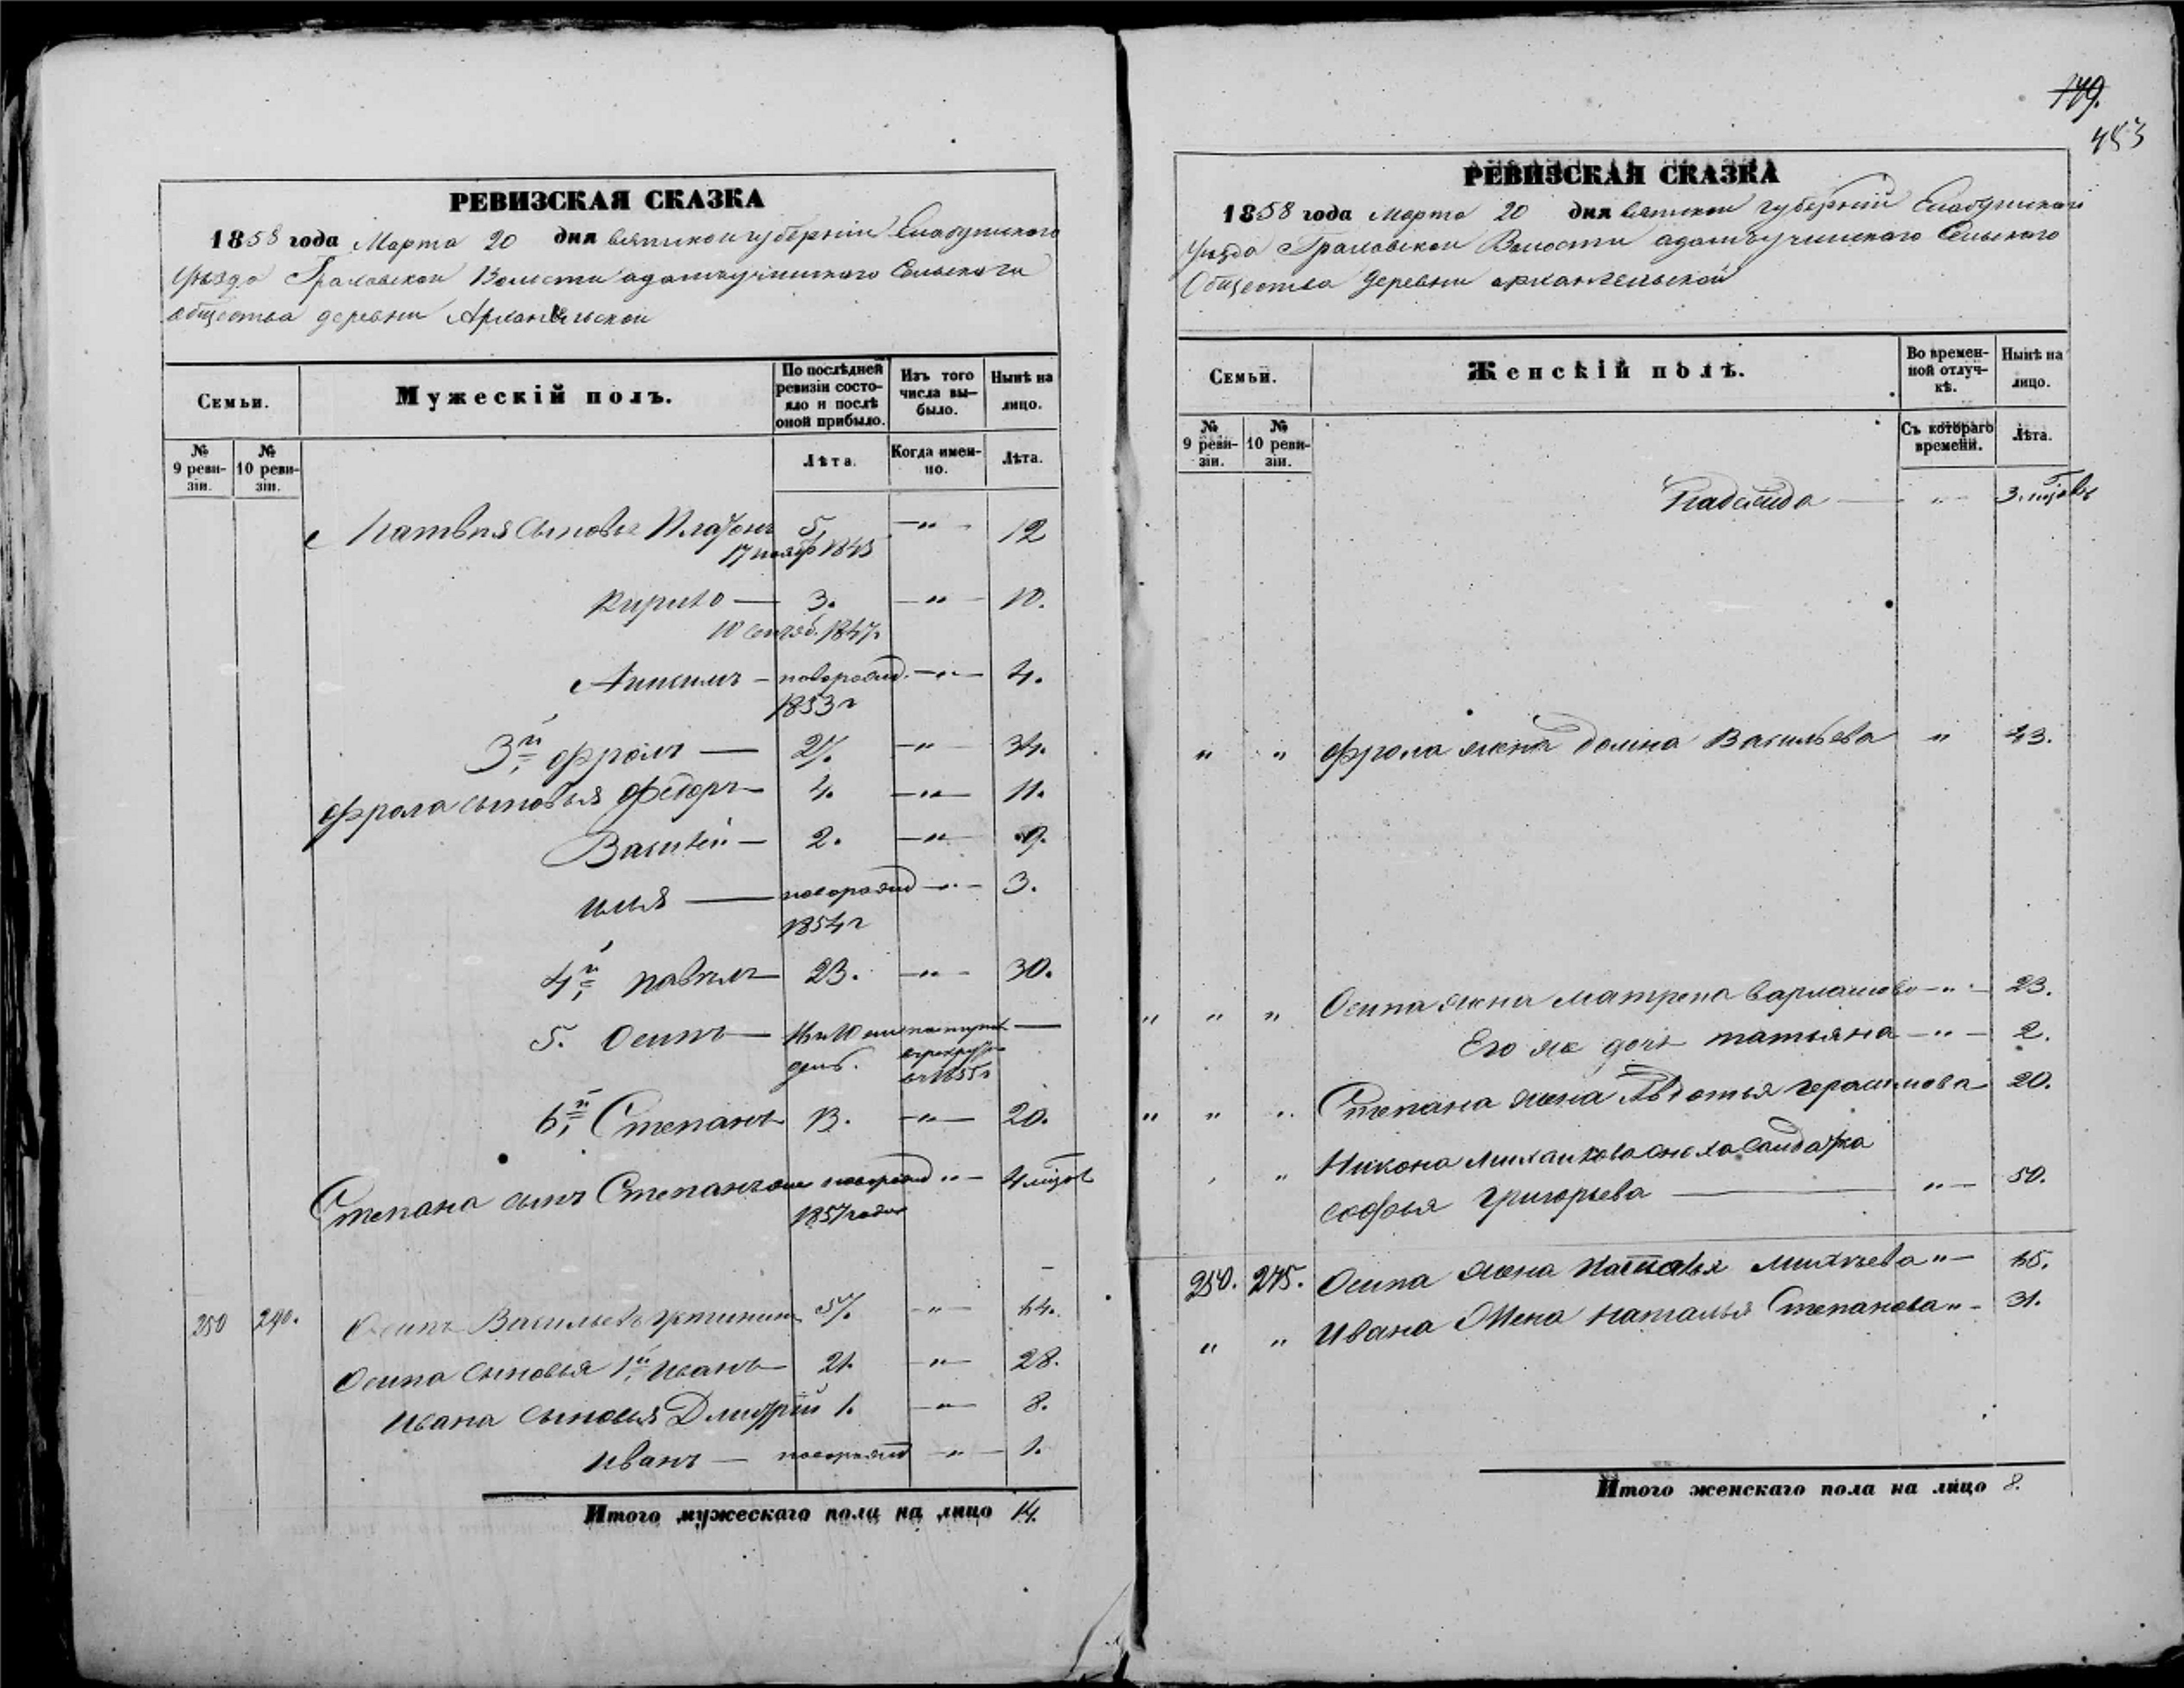 РЕВИЗСКАЯ СКАЗКА
1858 года Марта 20 дня вятской губерніи Елабужскаго
уѣзда Граховской Волости Сельскаго
общества деревни Архангельской
Семьи.
Мужескій полъ.
По послѣдней ревизіи состояло и послѣ оной прибыло.
Изъ того числа выбыло.
Нынѣ на лицо.
№ 9 ревизіи.
№ 10 ревизіи.
Лѣта.
Когда именно.
Лѣта.
Матвѣя сыновья Платонъ 5. —"— 12
17 нояб 1843
Кирило — 3. —"— 10.
10 сентяб. 1847.
Анисимъ — новорожд. —"— 4.
1853 г
3й Фролъ — 27. —"— 34.
Фрола сыновья Федоръ — 4. —"— 11.
Василей — 2. —"— 9.
Илья — новорожд —"— 3.
1854 г
4й Павелъ — 23. —"— 30.
5. Осипъ —
в 1855 г
6й Степанъ 13. —"— 20.
Степана сынъ Степанъ новорожд "— 4 мѣсяц
1857 года
250 290. Осипъ Васильевъ 57. —"— 64.
Осипа сыновья 1й Иванъ — 21. —"— 28.
Ивана сыновья Дмитрій 1. —"— 8.
Иванъ — новорожд —"— 1.
Итого мужескаго пола на лицо 14.
179.
453
РЕВИЗСКАЯ СКАЗКА
1858 года Марта 20 дня вятской губерніи Елабужскаго
уѣзда Граховской Волости Сельскаго
Общества деревни архангельской
Семьи.
Женскій полъ.
Во временной отлучкѣ.
Нынѣ на лицо.
№ 9 ревизіи.
№ 10 ревизіи.
Съ котораго времени.
Лѣта.
— " — 3.
" " Фрола жена Домна Васильева " 43.
" " " Осипа жена Матрена —"— 23.
Его же дочь татьяна —"— 2.
" " " Степана жена Авдотья герасимова 20.
" Никона сноха солдатка
софья григорьева — "— 50.
250. 275. Осипа жена "— 65.
" " Ивана Жена Наталья Степанова "— 31.
Итого женскаго пола на лицо 8.